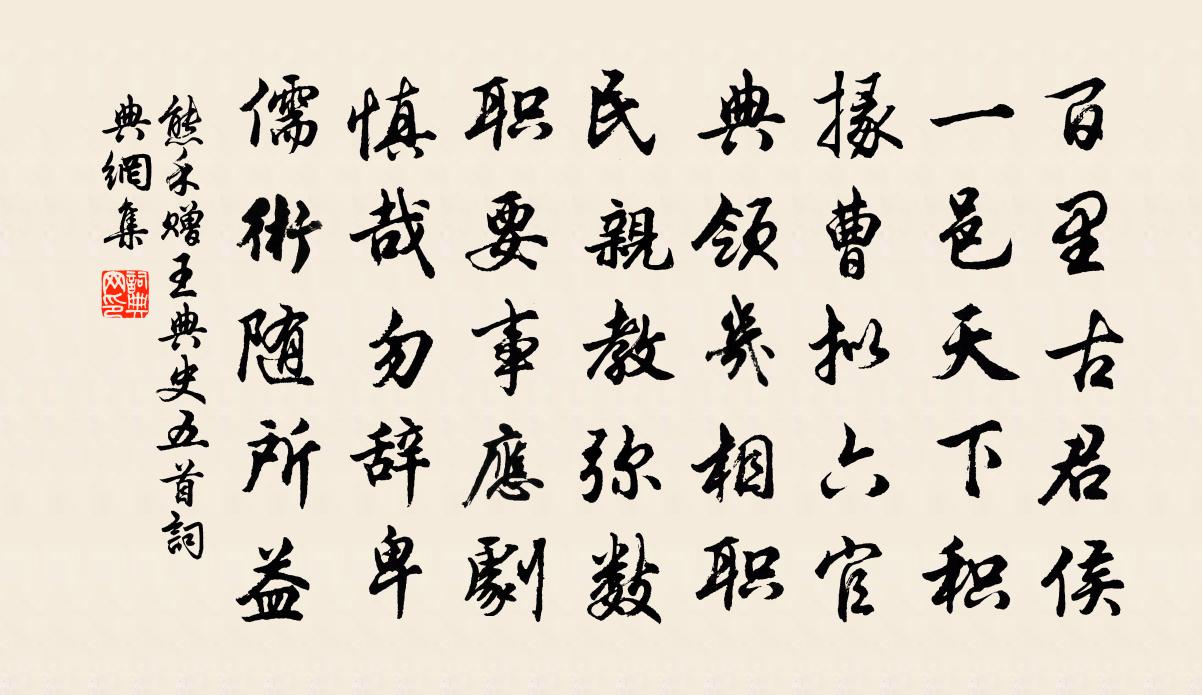 百里古君侯
一邑天下积
掾曹拟六官
典领幾相职
民親教弥数
职要事應劇
慎哉勿辞卑
儒術随所益
熊禾赠王典史五首詞
典網集
詞典网印